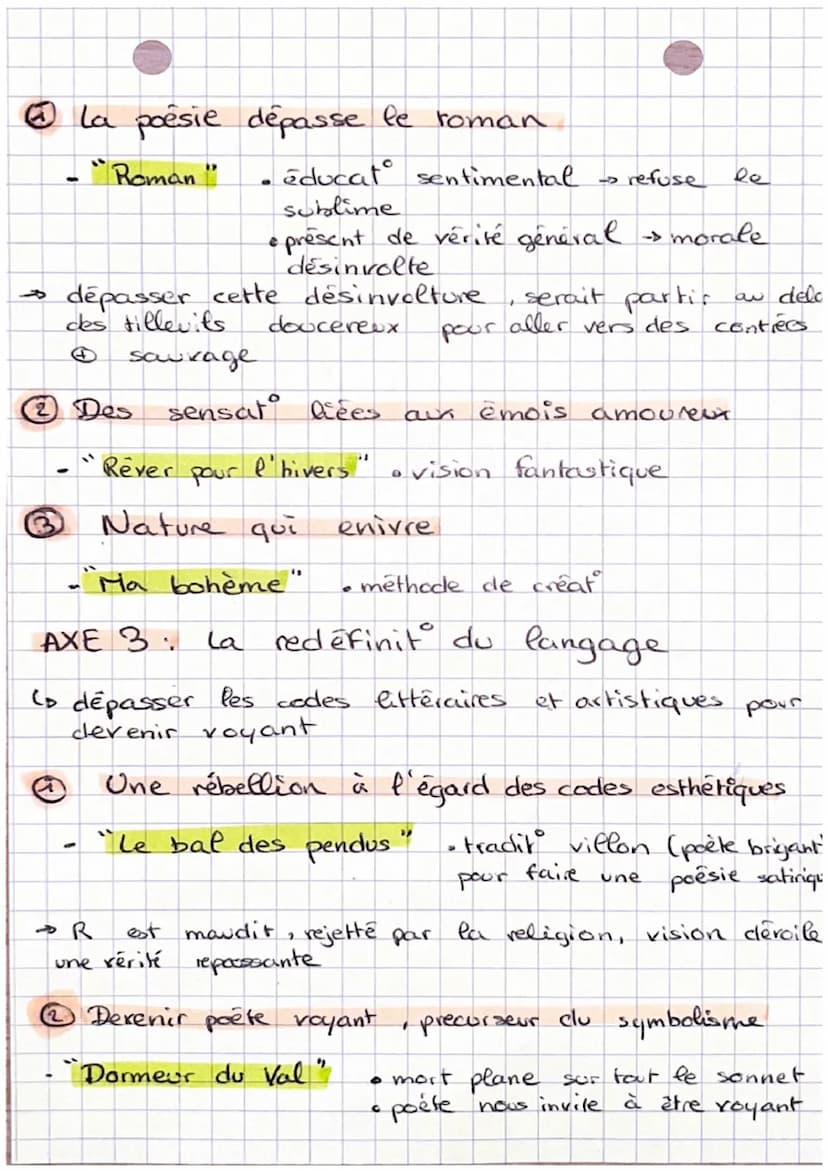 ① La poésie dépasse le roman
- "Roman" • éducat° sentimental → refuse le
sublime
• présent de vérité général → morale
désinvolte
→ dépasser cette désinvolture, serait partir au delà
des tilleuils doucereux pour aller vers des contrées
⊕ sauvage
② Des sensat° liées aux émois amoureux
- "Rêver pour l'hivers" • vision fantastique
③ Nature qui enivre
- "Ma bohème" • méthode de créat°
AXE 3 : La redéfinit° du langage
↳ dépasser les codes littéraires et artistiques pour
devenir voyant
① Une rébellion à l'égard des codes esthétiques
- "Le bal des pendus" • tradit° villon (poète brigant
pour faire une poésie satiriqu
→ R est maudit, rejetté par la religion, vision dévoile
une vérité repoussante
② Devenir poète voyant, precurseur du symbolisme
- "Dormeur du Val" • mort plane sur tout le sonnet
• poète nous invite à être voyant